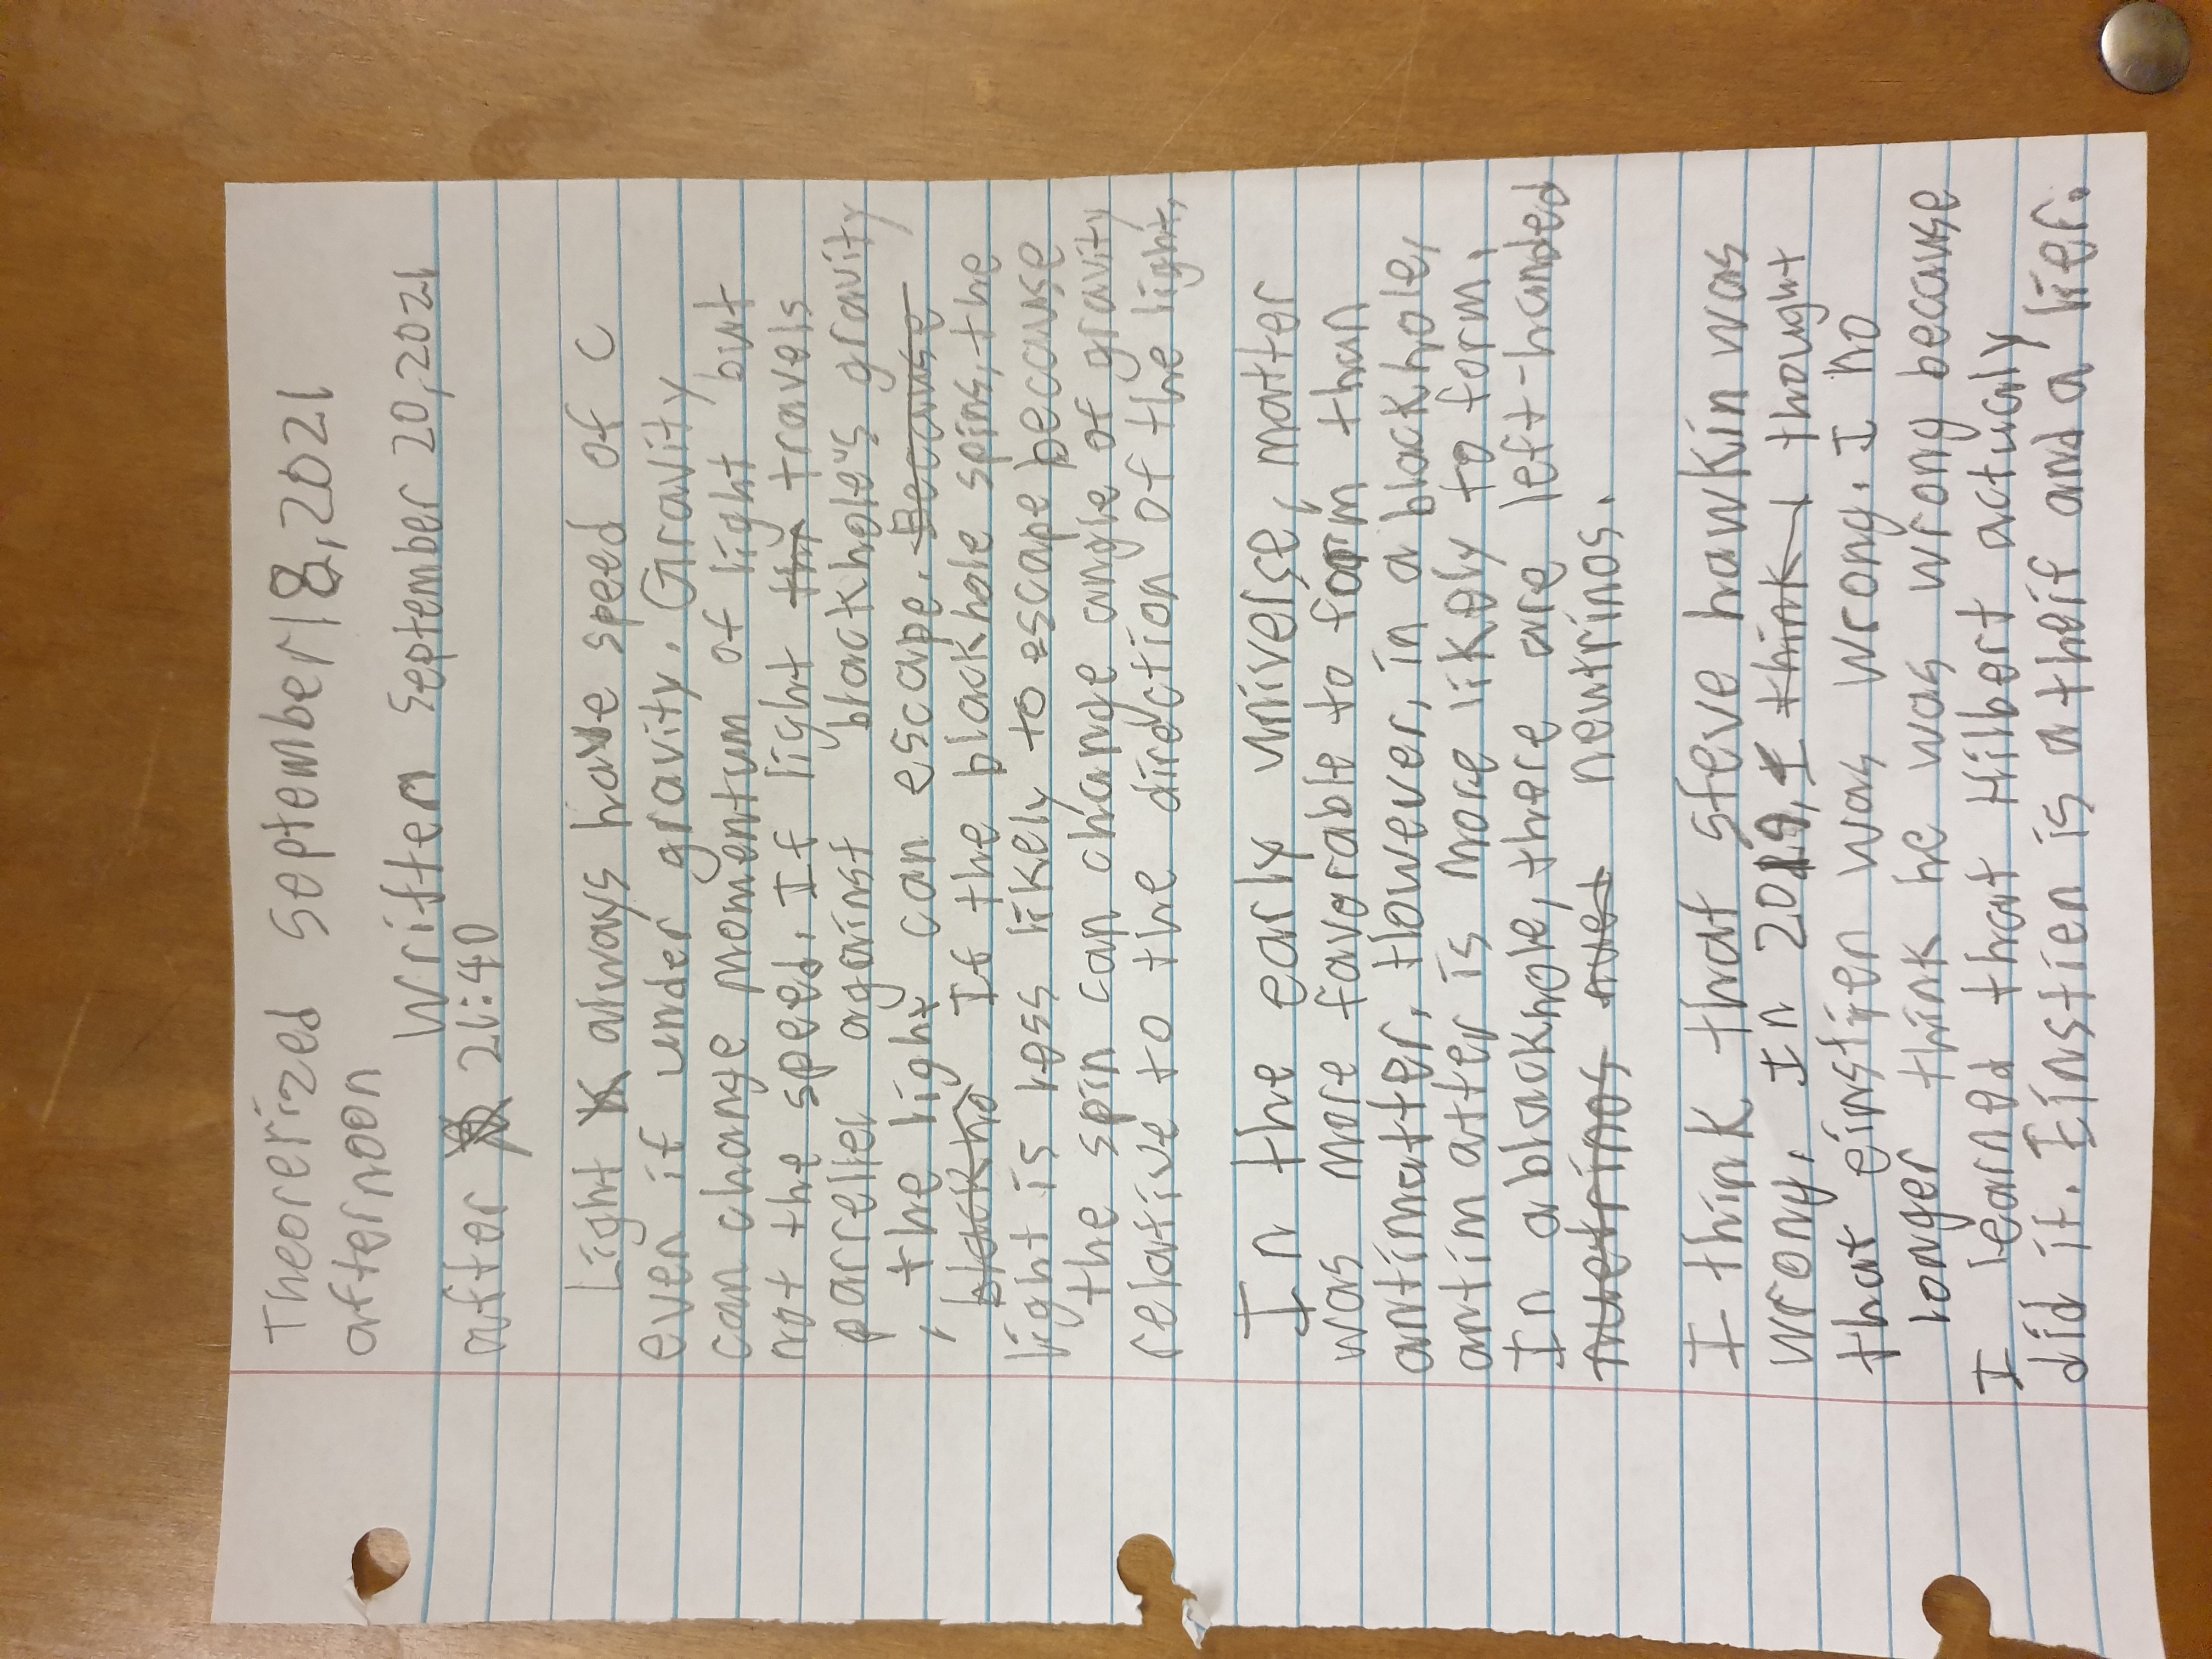 Theorerized September 18, 2021
afternoon
Written September 20, 2021
after 21:40
Light always have speed of c
even if under gravity. Gravity
can change momentum of light but
not the speed. If light thr travels
parrellel against blackhole's gravity
, the light can escape. Because
blackho If the blackhole spins, the
light is less likely to escape because
the spin can change angle of gravity
relative to the direction of the light.
In the early universe, matter
was more favorable to form than
antimatter. However, in a blackhole,
antimatter is more likely to form.
In a blackhole, there are left-handed
nuetrinos nuet neutrinos.
I think that steve hawkin was
wrong. In 2019, I think I thought
that einstien was wrong. I no
longer think he was wrong because
I learned that Hilbert actualy
did it. Einstien is a theif and a lier.